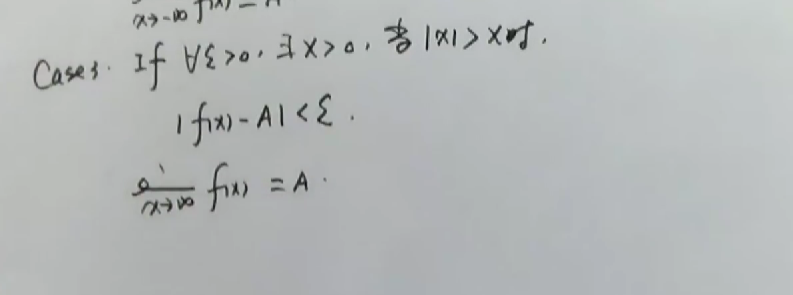 x→-∞ f(x) = A
Case3. If ∀ε>0, ∃X>0, 当|x|>X时,
|f(x)-A|<ε.
lim x→∞ f(x) = A.